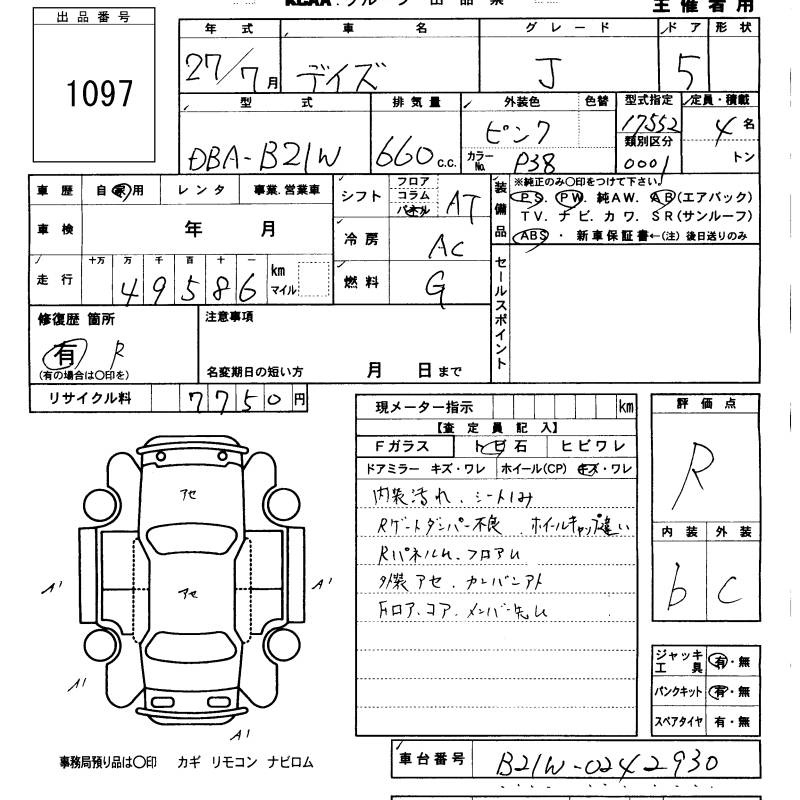 KCAA グループ出品票
主催者用
出品番号
1097
年式 車名 グレード ドア 形状
27/7月 デイズ J 5
型式 排気量 外装色 色替 型式指定 定員・積載
DBA-B21W 660c.c. ピンク 17552 4名
カラーNo. P38 類別区分 0001 トン
車歴 自家用 レンタ 事業.営業車
車検 年 月
走行 十万 万 千 百 十 一
49586 km マイル
シフト フロア コラム パネル AT
冷房 AC
燃料 G
装備品 ※純正のみ○印をつけて下さい。
PS. PW. 純AW. AB(エアバック)
TV. ナビ. カワ. SR(サンルーフ)
ABS ・ 新車保証書←(注) 後日送りのみ
セールスポイント
修復歴 箇所
有 R
(有の場合は○印を)
注意事項
名変期日の短い方 月 日まで
リサイクル料 7750円
現メーター指示 km
【査定員記入】
Fガラス トビ石 ヒビワレ
ドアミラー キズ・ワレ ホイール(CP) キズ・ワレ
内装汚れ、シートしみ
Rゲートダンパー不良 ホイールキャップ違い
Rパネルム、フロアム
外装アセ、カンバンアト
Fロア、コア、メンバー先ム
評価点
R
内装 外装
b C
ジャッキ工具 有・無
パンクキット 有・無
スペアタイヤ 有・無
アセ
アセ
A'
A'
A'
A'
事務局預り品は○印 カギ リモコン ナビロム
車台番号 B21W-0242930